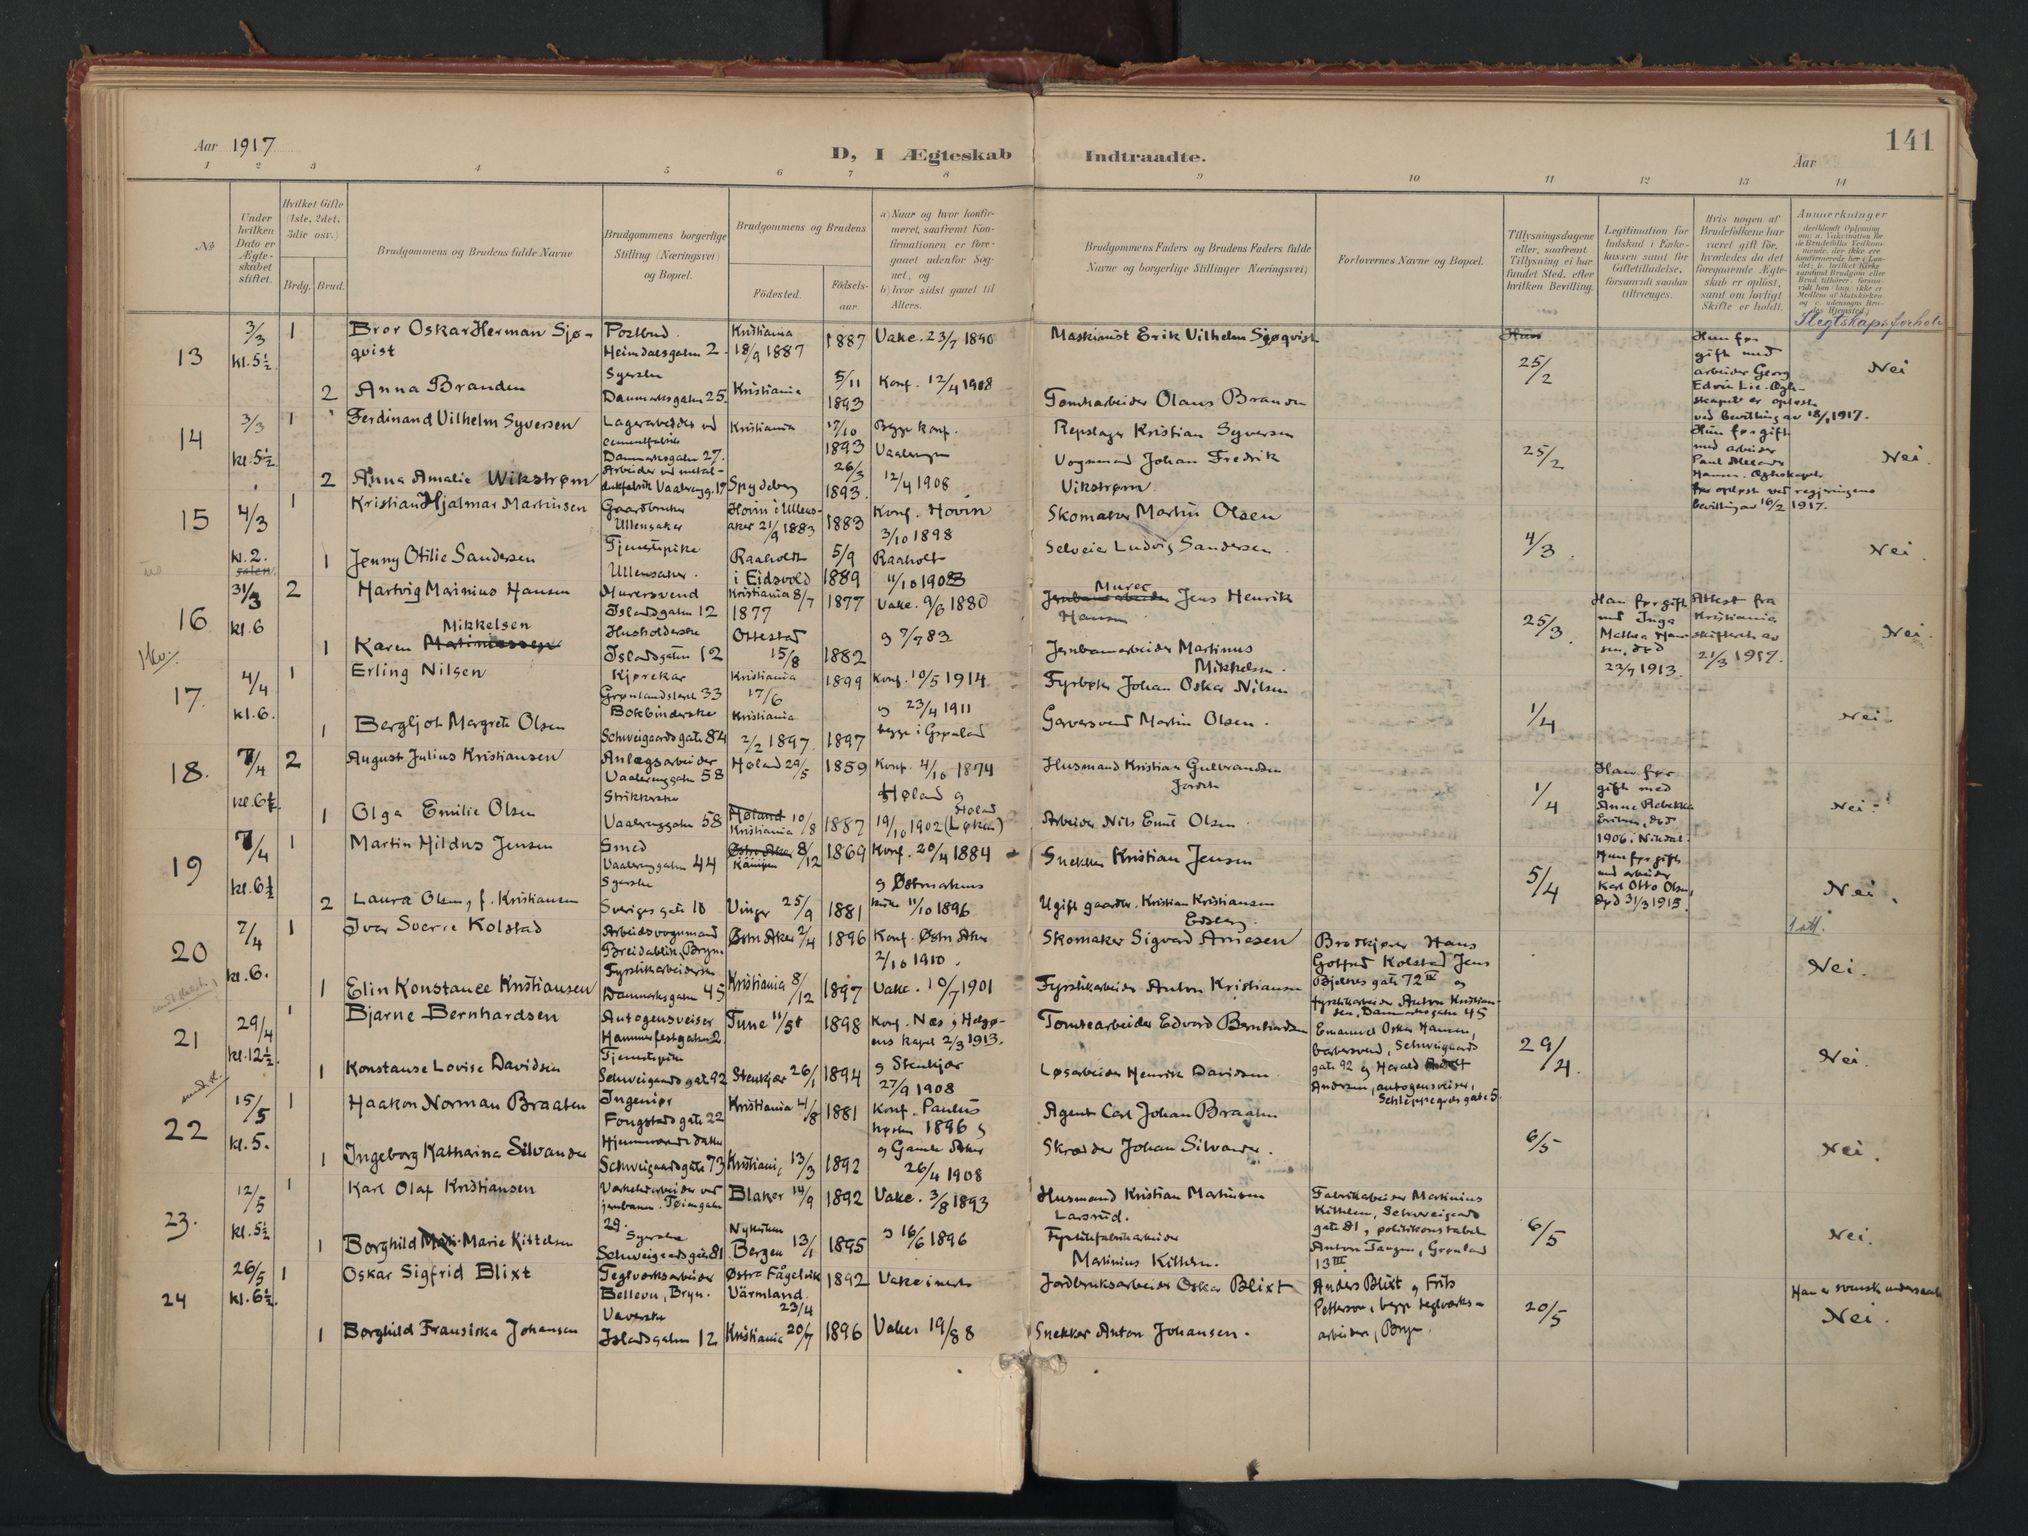 141
Aar 1917
D, I Ægteskab Indtraadte.
Aar
1 2 3 4 5 6 7 8 9 10 11 12 13 14
No
Under hvilken Dato er Ægteskabet stiftet.
Hvilket Gifte (1ste, 2det, 3die osv.)
Brdg. Brud.
Brudgommens og Brudens fulde Navne
Brudgommens borgerlige Stilling (Næringsvei) og Bopæl.
Brudgommens og Brudens
Fødested.
Fødselsaar.
a) Naar og hvor konfirmeret, saafremt Konfirmationen er foregaaet udenfor Sognet, og
b) hvor sidst gaaet til Alters.
Brudgommens Faders og Brudens Faders fulde Navne og borgerlige Stillinger (Næringsvei)
Forlovernes Navne og Bopæl.
Tillysningsdagene eller, saafremt Tillysning ei har fundet Sted, efter hvilken Bevilling.
Legitimation for Indskud i Enkekassen samt for Giftetilladelse, forsaavidt saadan tiltrænges.
Hvis nogen af Brudefolkene har været gift før, hvorledes da det foregaaende Ægteskab er opløst, samt om lovligt Skifte er holdt.
Anmærkninger
Slegtskapsforhold
13
3/3 kl. 5½
1 Bror Oskar Herman Sjøqvist
Postbud. Heimdalsgaten 2.
Kristiania 18/9 1887
1887
Vakc. 23/7 1890
Maskinist Erik Vilhelm Sjøqvist
25/2
Hun før gift med arbeider Georg Edvin Lie. Ægteskapet er opløst ved bevilling av 18/1 1917.
Nei
2 Anna Branden
Syerske Danmarksgaten 25.
Kristiania
5/11 1893
Konf. 12/4 1908
Tomtearbeider Olaus Branden
14
3/3 kl. 5½
1 Ferdinand Vilhelm Syversen
Lagerarbeider ved cementfabrik Danmarksgaten 27.
Kristiania
17/10 1893
Begge konf. Vaalerengen
Repslager Kristian Syversen
25/2
Hun før gift med arbeider
Nei
2 Anna Amalie Wikstrøm
Arbeider ved metal-
Spydeberg
26/3 1893
12/4 1908
Vognmand Johan Fredrik Vikstrøm.
bevilling av 16/2 1917.
15
4/3 kl. 2.
1 Kristian Hjalmar Martinsen
Gaardbruker Ullensaker
Hovin i Ullensaker 21/9 1883
1883
Konf. Hovin 3/10 1898
Skomaker Martin Olsen
4/3.
Nei.
1 Jenny Otilie Sandersen
Tjenestepike Ullensaker.
Raaholdt i Eidsvold
5/9 1889
Raaholt 11/10 1903
Selveier Ludvig Sandersen
16
31/3 kl. 6
2 Hartvig Marinius Hansen
Murersvend Islandsgaten 12
Kristiania 8/7 1877
1877
Vakc. 9/6 1880
Murer Jens Henrik Hansen
25/3.
Han før gift med Inga Mathea Hansen, død 22/7 1913.
Attest fra Kristiania skifteret av 21/3 1917.
Nei.
1 Karen Mikkelsen
Husholderske Islandsgaten 12
Ottestad 15/8
1882
og 7/7 83
Jernbanearbeider Martinus Mikkelsen.
17.
4/4 kl. 6.
1 Erling Nilsen
Kjørekar Grønlandsleret 33
Kristiania 17/6
1899
Konf. 10/5 1914
Fyrbøter Johan Oskar Nilsen
1/4
Nei.
1 Bergljot Margrete Olsen
Bokbinderske Schweigaardsgate 84
Kristiania 2/2 1897.
1897
og 23/4 1911 begge i Grønland
Garversvend Martin Olsen.
18.
7/4 kl. 6½.
2 August Julius Kristiansen
Anlægsarbeider Vaalerenggaten 58
Høland 29/5
1859
Konf. 4/10 1874 Høland og
Husmand Kristian Gulbrandsen
1/4
Han før gift med Anne Rebekka Eriksen, død 1906 i Nitedal.
Nei.
1 Olga Emilie Olsen
Strikkerske Vaalerenggaten 58
Høland 10/8 Kristiania
1887
19/10 1902 Høland (Løken)
Arbeider Nils Emil Olsen.
19
7/4 kl. 6½
1 Martin Hildus Jensen
Smed Vaalerenggaten 44
Østre Aker 8/12 Kampen
1869
Konf. 20/4 1884
Snekker Kristian Jensen
5/4
Hun før gift med arbeider Karl Otto Olsen, død 31/3 1915.
Nei.
2 Laura Olsen, f. Kristiansen
Syerske Sveriges gate 10
Vinger 25/9
1881
og Østmarkens kirke 11/10 1896
Ugift gaardbr. Kristian Kristiansen Edsberg.
20
7/4 kl. 6.
1 Ivar Sverre Kolstad
Arbeidsvognmand Breidablik, Bryn
Østre Aker 2/4
1896
Konf. Østre Aker 2/10 1910.
Skomaker Sigvard Arnesen
Brødkjører Hans Gotfred Kolstad Jens Bjelkes gate 72 IV og fyrstikarbeider Anton Kristiansen, Danmarksgate 45
1 att.
Nei.
1 Elin Konstance Kristiansen
Fyrstikarbeiderske Danmarksgaten 45
Kristiania 8/12
1897
Vakc. 10/7 1901
Fyrstikarbeider Anton Kristiansen
21
29/4 kl. 12½.
1 Bjarne Bernhardsen
Autogensveiser Hammerfestgaten 2.
Tune 11/5
1898
Konf. Næs, Helgøens kapel 2/3 1913.
Tomtearbeider Edvard Bernhardsen
Emanuel Oskar Hansen, barbersvend, Schweigaardsgate 92 og Harald Andersen, autogensveiser, Schleppegrelsgate 5.
29/4.
Nei.
1 Konstanse Lovise Davidsen
Tjenestepike Schweigaardsgate 92
Stenkjær 26/1
1894
og Stenkjær 27/9 1908
Løsarbeider Henrik Davidsen.
22
15/5 kl. 5.
1 Haakon Norman Braaten
Ingeniør Fougstads gate 22
Kristiania 4/8
1881
Konf. Paulus høsten 1896 og
Agent Carl Johan Braaten
6/5
Nei.
1 Ingeborg Katharina Silvander
Hjemmeværende datter Schweigaardsgate 73
Kristiania, 13/3
1892
og Gamle Aker 26/4 1908
Skrædder Johan Silvander.
23.
12/5 kl. 5½
1 Karl Olaf Kristiansen
Verkstedarbeider ved jernbanen. Tøiengaten 29.
Blaker 14/9
1892
Vakc. 3/8 1893
Husmand Kristian Martinsen Larsrud.
Fabrikarbeider Martinius Kittelsen, Schweigaardsgate 81, politikonstabel Anton Tangen, Grønland 13 III
6/5
Nei.
1 Borghild Marie Kittelsen
Syerske Schweigaardsgate 81
Nykirken Bergen 13/1
1895
og 16/6 1896
Fyrstikfabrikarbeider Martinius Kittelsen.
24
26/5 kl. 6½.
1 Oskar Sigfrid Blixt
Teglverksarbeider Bellevu, Bryn.
Østra Fågelvik Värmland. 23/4
1892
Vakcinert
Jordbruksarbeider Oskar Blixt
Anders Blixt og Frits Petterson, begge teglverksarbeidere, Bryn.
20/5
Han er svensk undersaat
Nei.
1 Borghild Fransiska Johansen
Veverske Islandsgaten 12
Kristiania 20/7
1896
Vakc. 19/8 8
Snekker Anton Johansen.